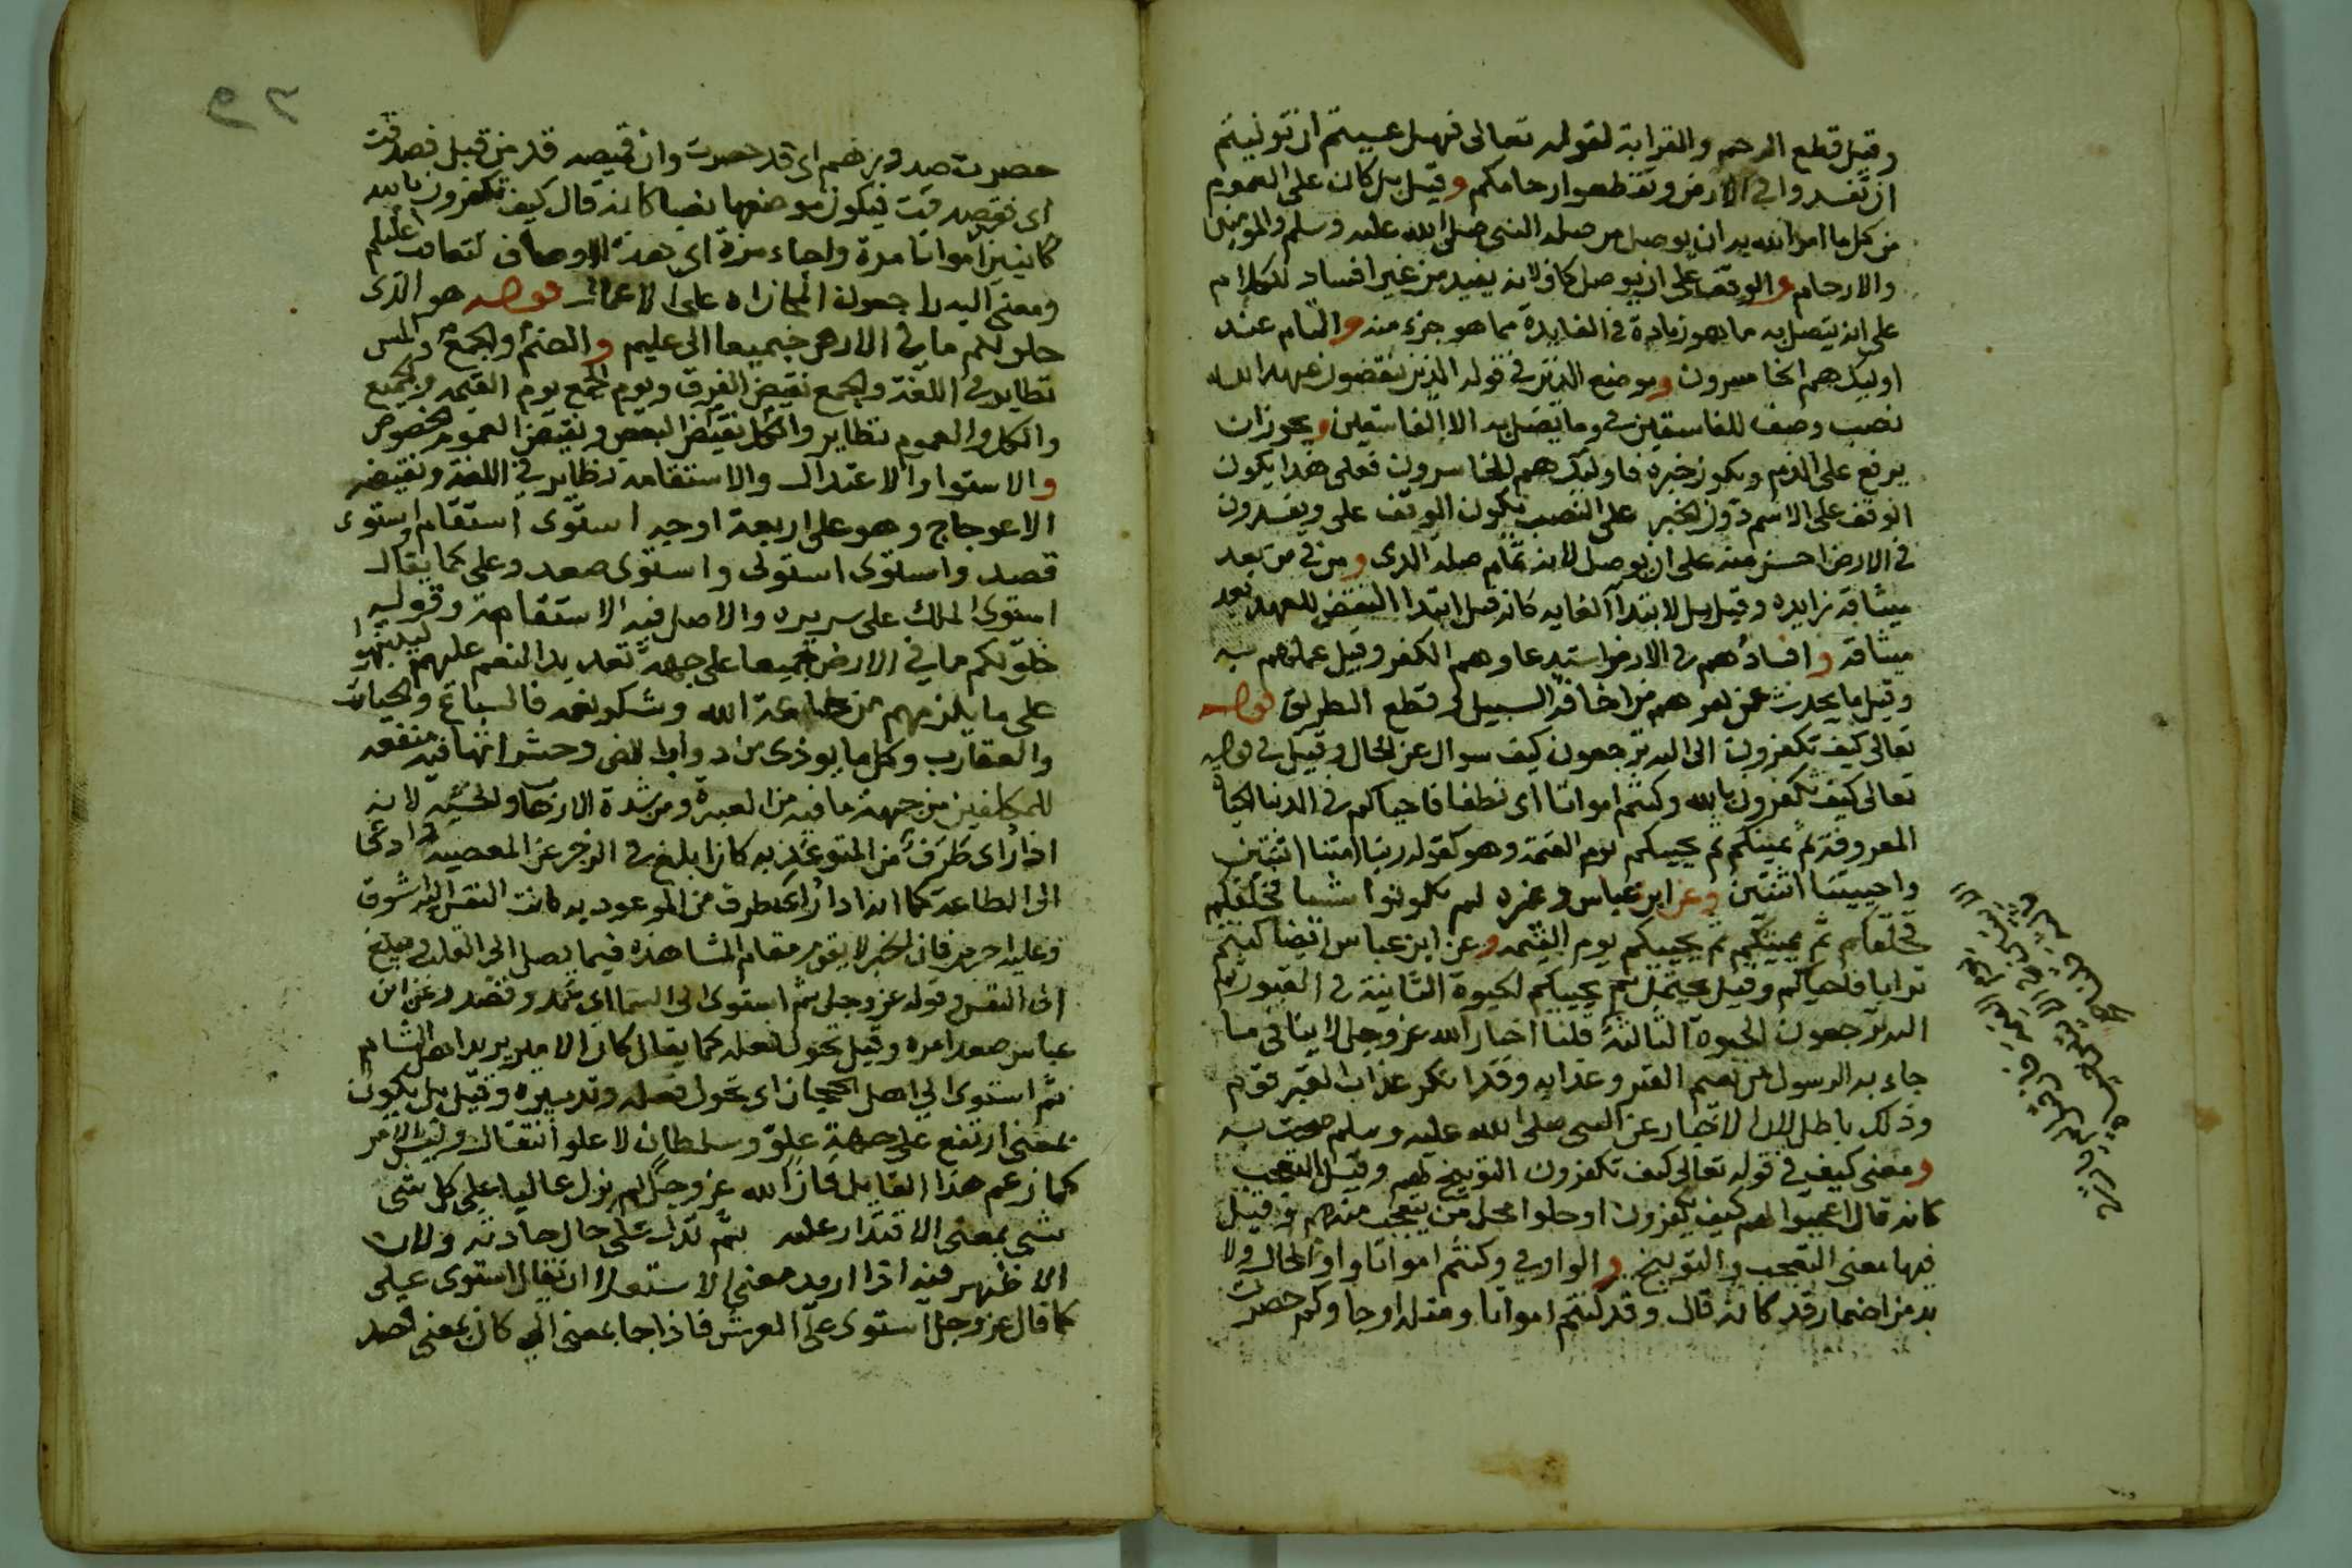 وقيل قطع الرحم والقرابة لقوله تعالى فهل عسيتم ان توليتم
ان تفسدوا في الارض وتقطعوا ارحامكم وقيل بل كان على العموم
من كل ما امر الله به ان يوصل من صلة النبي صلى الله عليه وسلم والمومنين
والارحام والوقف على ان يوصل كاف لانه يفيد من غير افساد للكلام
على انه يتصل به ما هو زيادة في الفايدة مما هو جزء منه والتام عند
اوليك هم الخاسرون وموضع الذين في قوله الذين ينقضون عهد الله
نصب وصف للفاسقين في وما يضل به الا الفاسقين ويجوز ان
يرفع على الذم ويكون خبره فاوليك هم الخاسرون فعلى هذا يكون
الوقف على الاسم دون الخبر على النصب يكون الوقف على ويفسدون
في الارض احسن منه على ان يوصل لانه تمام صلة الذي ومن في من بعد
ميثاقه زايدة وقيل بل لابتدا الغايه كانه قيل ابتدا النقض للعهد بعد
ميثاقه وافسادهم في الارض استدعاوهم الكفر وقيل عملهم به
وقيل ما يحدث من اخافة السبيل و قطع الطريق قوله
تعالى كيف تكفرون الى اليه ترجعون كيف سوال عن الحال وقيل في قوله
تعالى كيف تكفرون بالله وكنتم امواتا اى نطفا فاحياكم في الدنيا الحياة
المعروفة ثم يميتكم ثم يحييكم يوم القيمة وهو كقوله ربنا امتنا اثنتين
واحييتنا اثنتين وعن ابن عباس وغيره لم تكونوا شيا فخلقكم
فخلقكم ثم يميتكم ثم يحييكم يوم القيمه وعن ابن عباس ايضا كنتم
ترابا فاحياكم وقيل يحتمل ثم يحييكم الحيوة الثانية في القبور ثم
اليه ترجعون الحيوة الثالثة قلنا اخبار الله عز وجل لا ينافي ما
جاء به الرسول من نعيم القبر وعذابه وقد انكر عذاب القبر قوم
وذلك باطل لان الاخبار عن النبي صلى الله عليه وسلم صحت به
ومعنى كيف في قوله تعالى كيف تكفرون التوبيخ لهم وقيل التعجب
كانه قال اعجبوا لهم كيف يكفرون او حلوا محل من يتعجب منهم وقيل
فيها معنى التعجب والتوبيخ والواو في وكنتم امواتا واو الحال ولا
بد من اضمار قد كانه قال وقد كنتم امواتا ومثله او جاوكم حصرت
حصرت صدورهم اى قد حصرت وان قميصه قد من قبل فصدقت
اى فقد صدقت فيكون موضعها نصبا كانه قال كيف تكفرون بالله
كاينين امواتا مرة واحياء مرة اى هذه الاوصاف تتعاقب عليكم
ومعنى اليه راجعون المجازاة على الاعمال قوله هو الذى
خلق لكم ما في الارض جميعا الى عليم والضم والجمع
نظاير في اللغة والجمع نقيض الفرق ويوم الجمع يوم القيمه والجميع
والكل والعموم نظاير والكل نقيض البعض ونقيض العموم الخصوص
والاستوا والاعتدال والاستقامة نظاير في اللغة ونقيضه
الاعوجاج وهو على اربعة اوجه استوى استقام واستوى
قصد واستوى استولى واستوى صعد وعلى كما يقال
استوى الملك على سريره والاصل فيه الاستقامة وقوله
خلق لكم ما في الارض جميعا على جهة تعديد النعم عليهم لينتبهوا
على ما يلزمهم من طاعة الله وشكر نعمه فالسباع والحيات
والعقارب وكل ما يوذى من دواب الارض وحشراتها فيه منفعه
للمكلفين من جهة ما فيه من العبرة ومن شدة الارهاب والخشية لانه
اذا راى طرفا من المتوعد به كان ابلغ في الزجر عن المعصية وادعى
الى الطاعة كما انه اذا راى طرفا من الموعود به كانت النفس اليه اشوق
وعليه احرص فان الخبر لا يقوم مقام المشاهدة فيما يصل الى القلب ويبلغ
الى النفس وقوله عز وجل ثم استوى الى السما اى عمد وقصد وعن ابن
عباس صعد امره وقيل تحول فعله كما يقال كان الامير يريد اهل الشام
ثم استوى الى اهل الحجاز اى تحول فعله وتدبيره وقيل بل يكون
بمعنى ارتفع على جهة علو وسلطان لا علو انتقال وليس الامر
كما زعم هذا القايل فان الله عز وجل لم يزل عاليا على كل شى
شى بمعنى الاقتدار عليه ثم تدل على حال حادثة ولان
الاظهر فيه اذا اريد معنى الاستعلا ان يقال استوى على
كما قال عز وجل استوى على العرش فاذا جا بمعنى الى كان بمعنى قصد